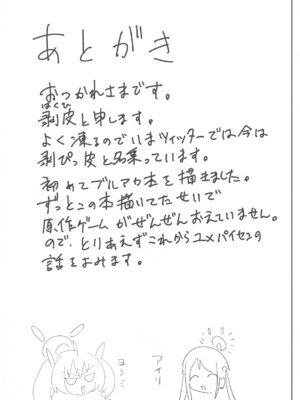 あとがき
おつかれさまです。
はくひ
剥皮と申します。
よく凍るのでいまツイッターでは今は
剥ぴっ皮と名乗っています。
初めてブルアカ本を描きました。
ずっとこの本描いてたせいで
原作ゲームがぜんぜんおえていません。
ので、とりあえずこれからユメパイセンの
話をよみます。
ヨシミ
アイリ